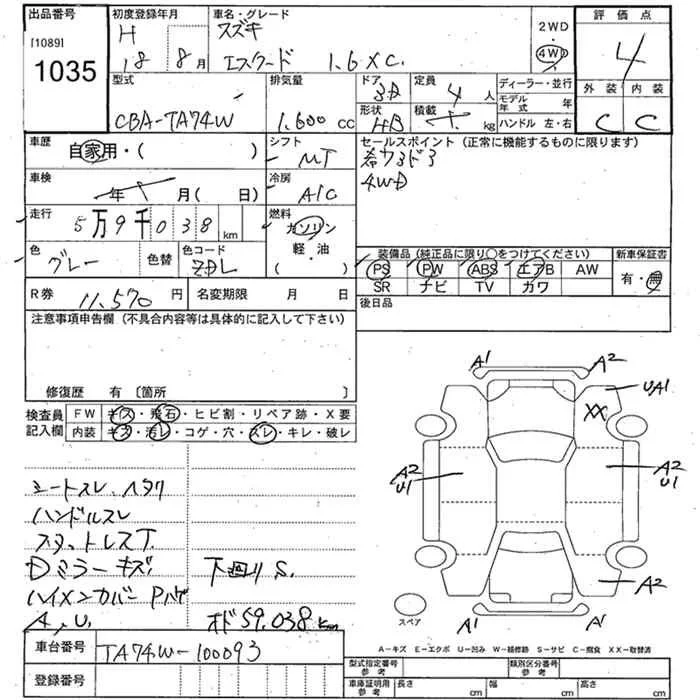 出品番号 初度登録年月 車名・グレード 2WD 評価点
[1089] H スズキ 4WD
1035 18 8月 エスクード 1.6 XC. 4
型式 排気量 ドア 3D 定員 4人 ディーラー・並行 外装 内装
CBA-TA74W 1.600cc 形状 HB 積載 kg モデル年式 年 C C
ハンドル 左・右
車歴 自家用・( ) シフト MT セールスポイント (正常に機能するものに限ります)
車検 年 月(日) 冷房 A/C 希少3ドア
4WD
走行 5万9千038km 燃料 ガソリン
軽・油
( )
色 グレー 色替 色コード ZDL
装備品 (純正品に限り○をつけてください) 新車保証書
PS PW ABS エアB AW 有・無
SR ナビ TV カワ
R券 11,570円 名変期限 月 日 後日品
注意事項申告欄 (不具合内容等は具体的に記入して下さい)
修復歴 有 [箇所 ]
検査員 FW キズ・飛石・ヒビ割・リペア跡・X要
記入欄 内装 キズ・汚レ・コゲ・穴・スレ・キレ・破レ
A1 A2
UA1
XX
A2 A2
U1 U1
A2
A1 A1
スペア
シートスレ、ヘタリ
ハンドルスレ
スタットレスT.
Dミラーキズ 下回りS.
ハイメンカバーPハゲ
A、U. オド59.038km
A-キズ E-エクボ U-凹み W-補修跡 S-サビ C-腐食 XX-取替済
車台番号 TA74W-100093
登録番号
型式指定番号 参考 類別区分番号 参考
車庫証明用 参考 長さ cm 幅 cm 高さ cm